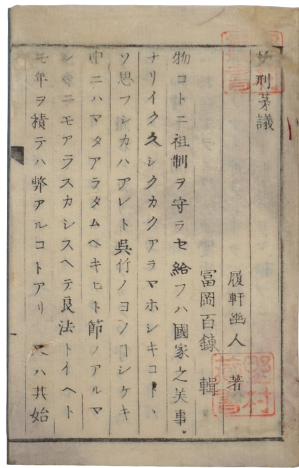 恤刑茅議
履軒幽人 著
冨岡百錬 輯
物コトニ祖制ヲ守ラセ給フハ國家之美事
ナリイク久シクカクアラマホシキコトヽ
ソ思フシカハアレト呉竹ノヨノコシケキ
中ニハマタアラタムヘキヒト節ノアルマ
シキニモアラスカシスヘテ良法トイヘト
モ年ヲ積テハ弊アルコトアリ又ハ其始